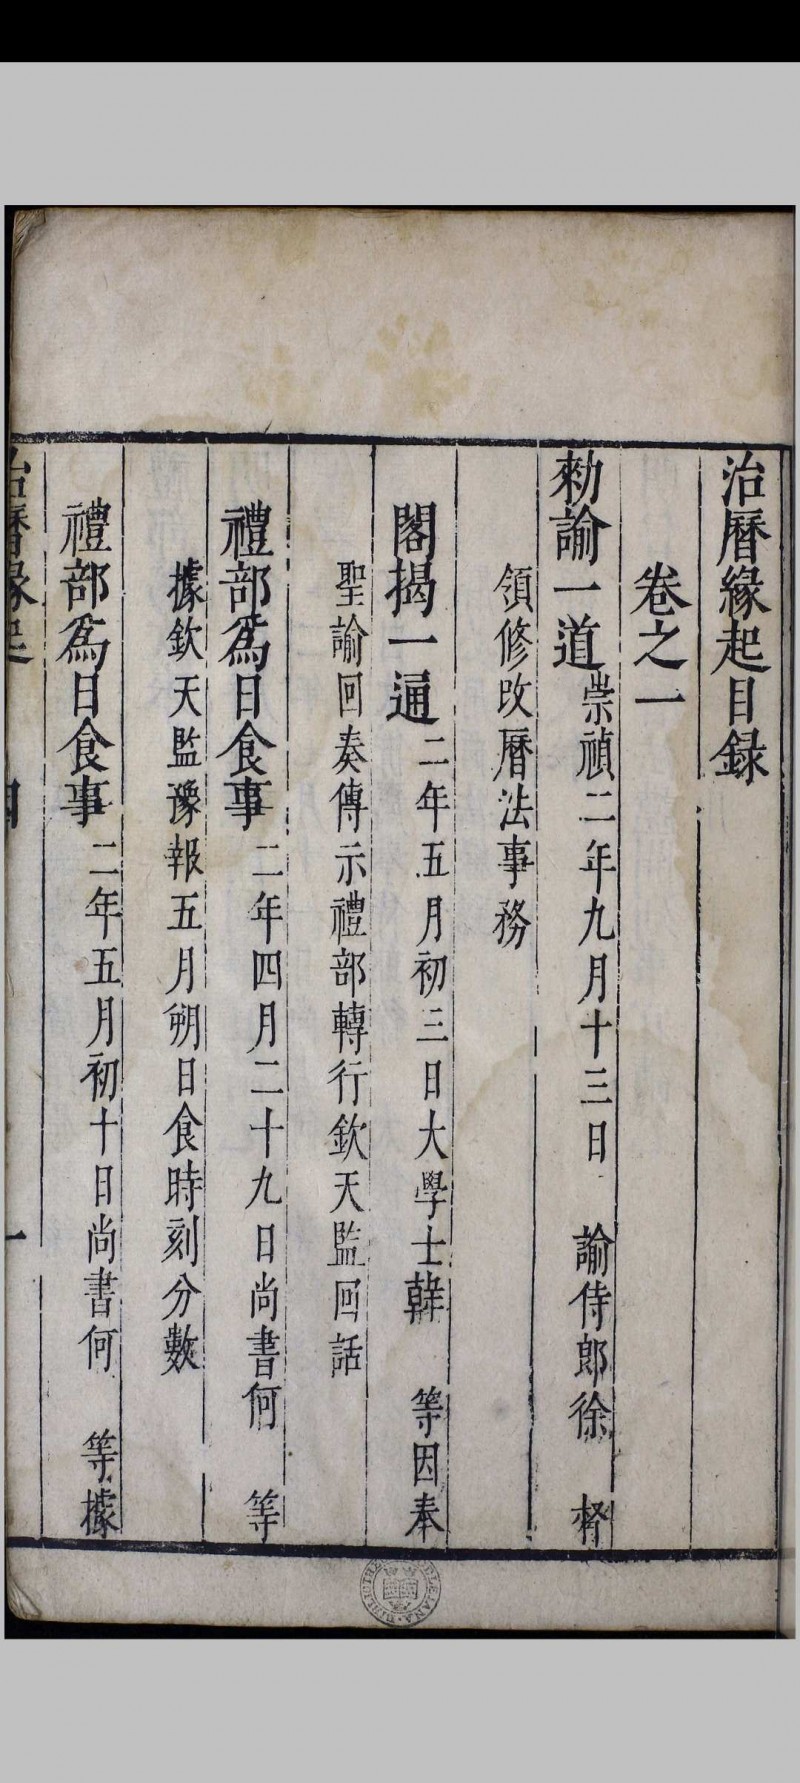 治曆緣起目録
卷之一
勑諭一道崇禎二年九月十三日 諭侍郎徐 督
領修改曆法事務
閣揭一通二年五月初三日大學士韓 等因奉
聖諭回奏傳示禮部轉行欽天監回話
禮部爲日食事二年四月二十九日尚書何 等
據欽天監豫報五月朔日食時刻分數
禮部爲日食事二年五月初十日尚書何 等據
治曆緣起 一